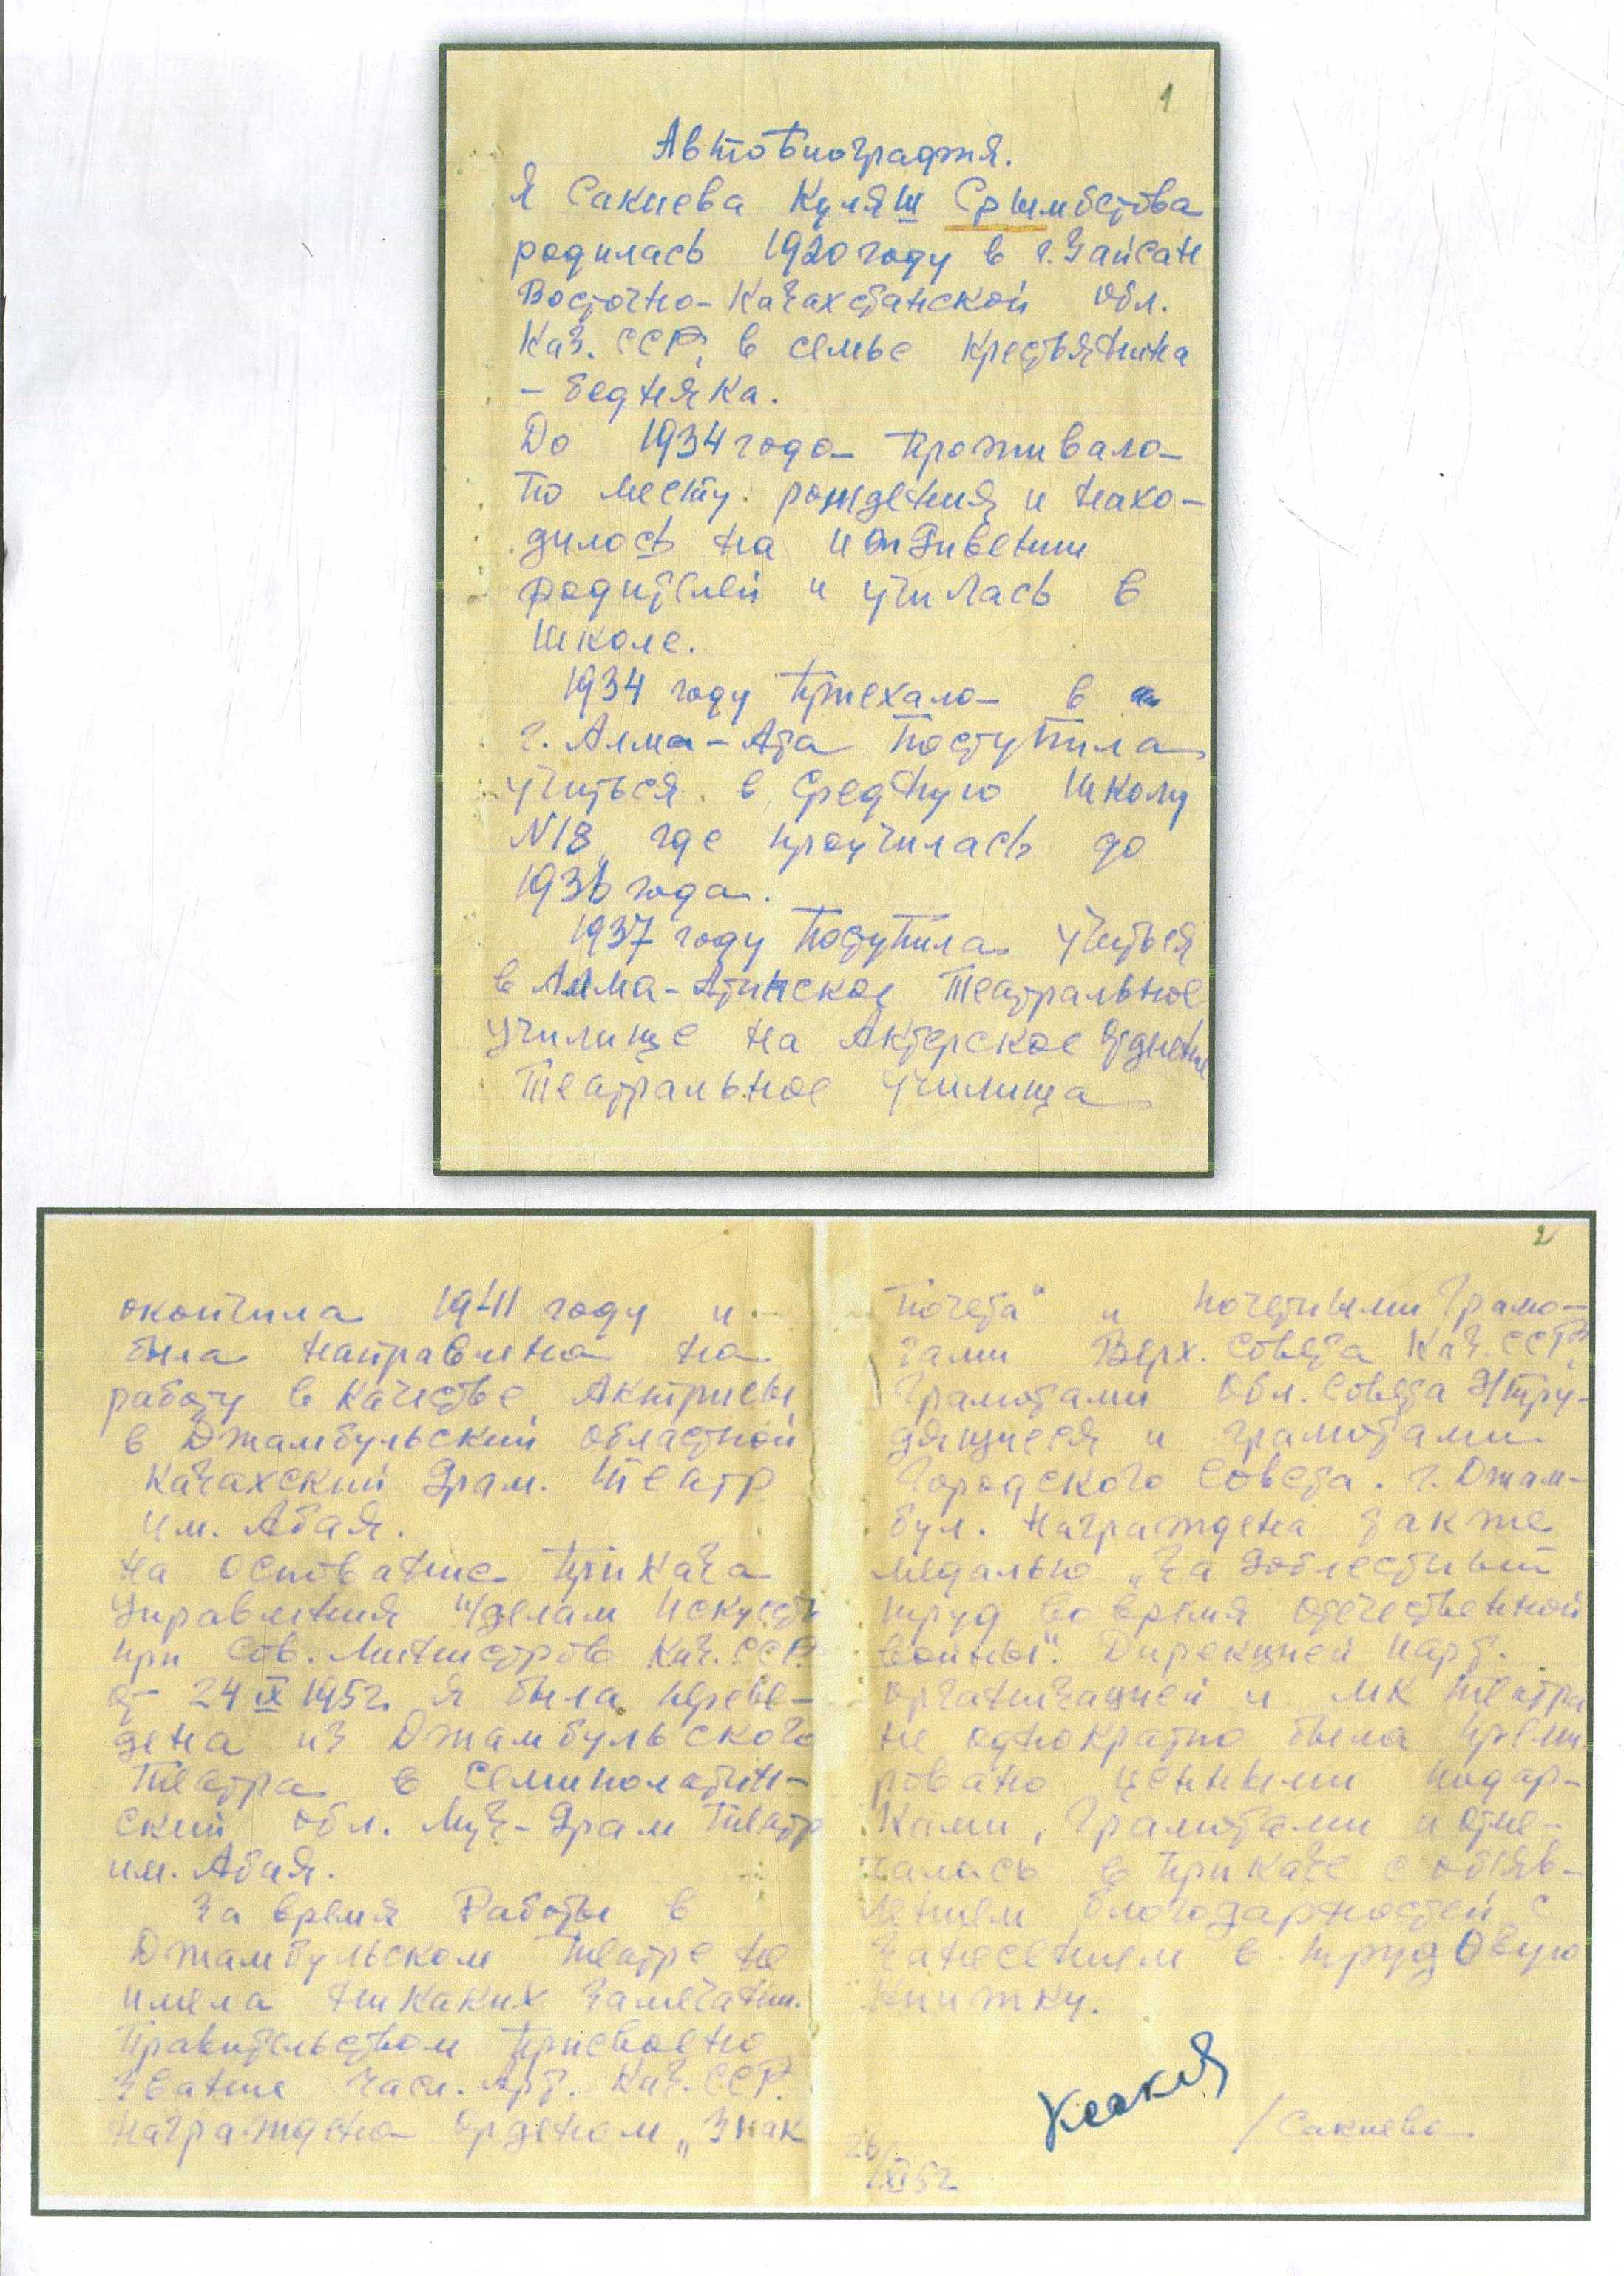 1
Автобиография.
Я Сакиева Куляш Срымбетова
родилась 1920 году в г. Зайсан
Восточно-Казахстанской обл.
Каз. ССР, в семье крестьянина
– бедняка.
До 1934 года проживала
по месту рождения и нахо-
дилась на иждивении
родителей и училась в
школе.
1934 году приехала в
г. Алма-Ата поступила
учиться в среднюю школу
N18, где проучилась до
1936 года.
1937 году поступила учиться
в Алма-Атинское Театральное
училище на Актерское
Театральное училища
2
окончила 1941 году и
была направлена на
работу в качестве Актрисы
в Джамбульский областной
Казахский Драм. театр
им. Абая.
На основание приказа
Управления п/делам Искусств
при Сов. Министров Каз. ССР
от 24 IX 1952 я была переве-
дена из Джамбульского
театра в Семипалатин-
ский обл. Муз-Драм театр
им. Абая.
За время Работы в
Джамбульском театре не
имела никаких замечании.
Правительством присвоено
звание засл. Арт. Каз. ССР.
Награждена орденом „Знак
Почета“ и почетными Грамо-
тами Верх. Совета Каз. ССР,
Грамотами Обл. Совета Д/тру-
дящиеся и грамотами
Городского Совета. г. Джам-
бул. Награждена также
медалью „За доблестный
труд во время отечественной
войны“. Дирекцией парт.
организацией и МК театра
не однократно была преми
ровано ценными подар-
ками, грамотами и отме-
чалась в приказе с объяв-
лением благодарностей с
занесением в трудовую
книжку.
/Сакиева
26/XI 52